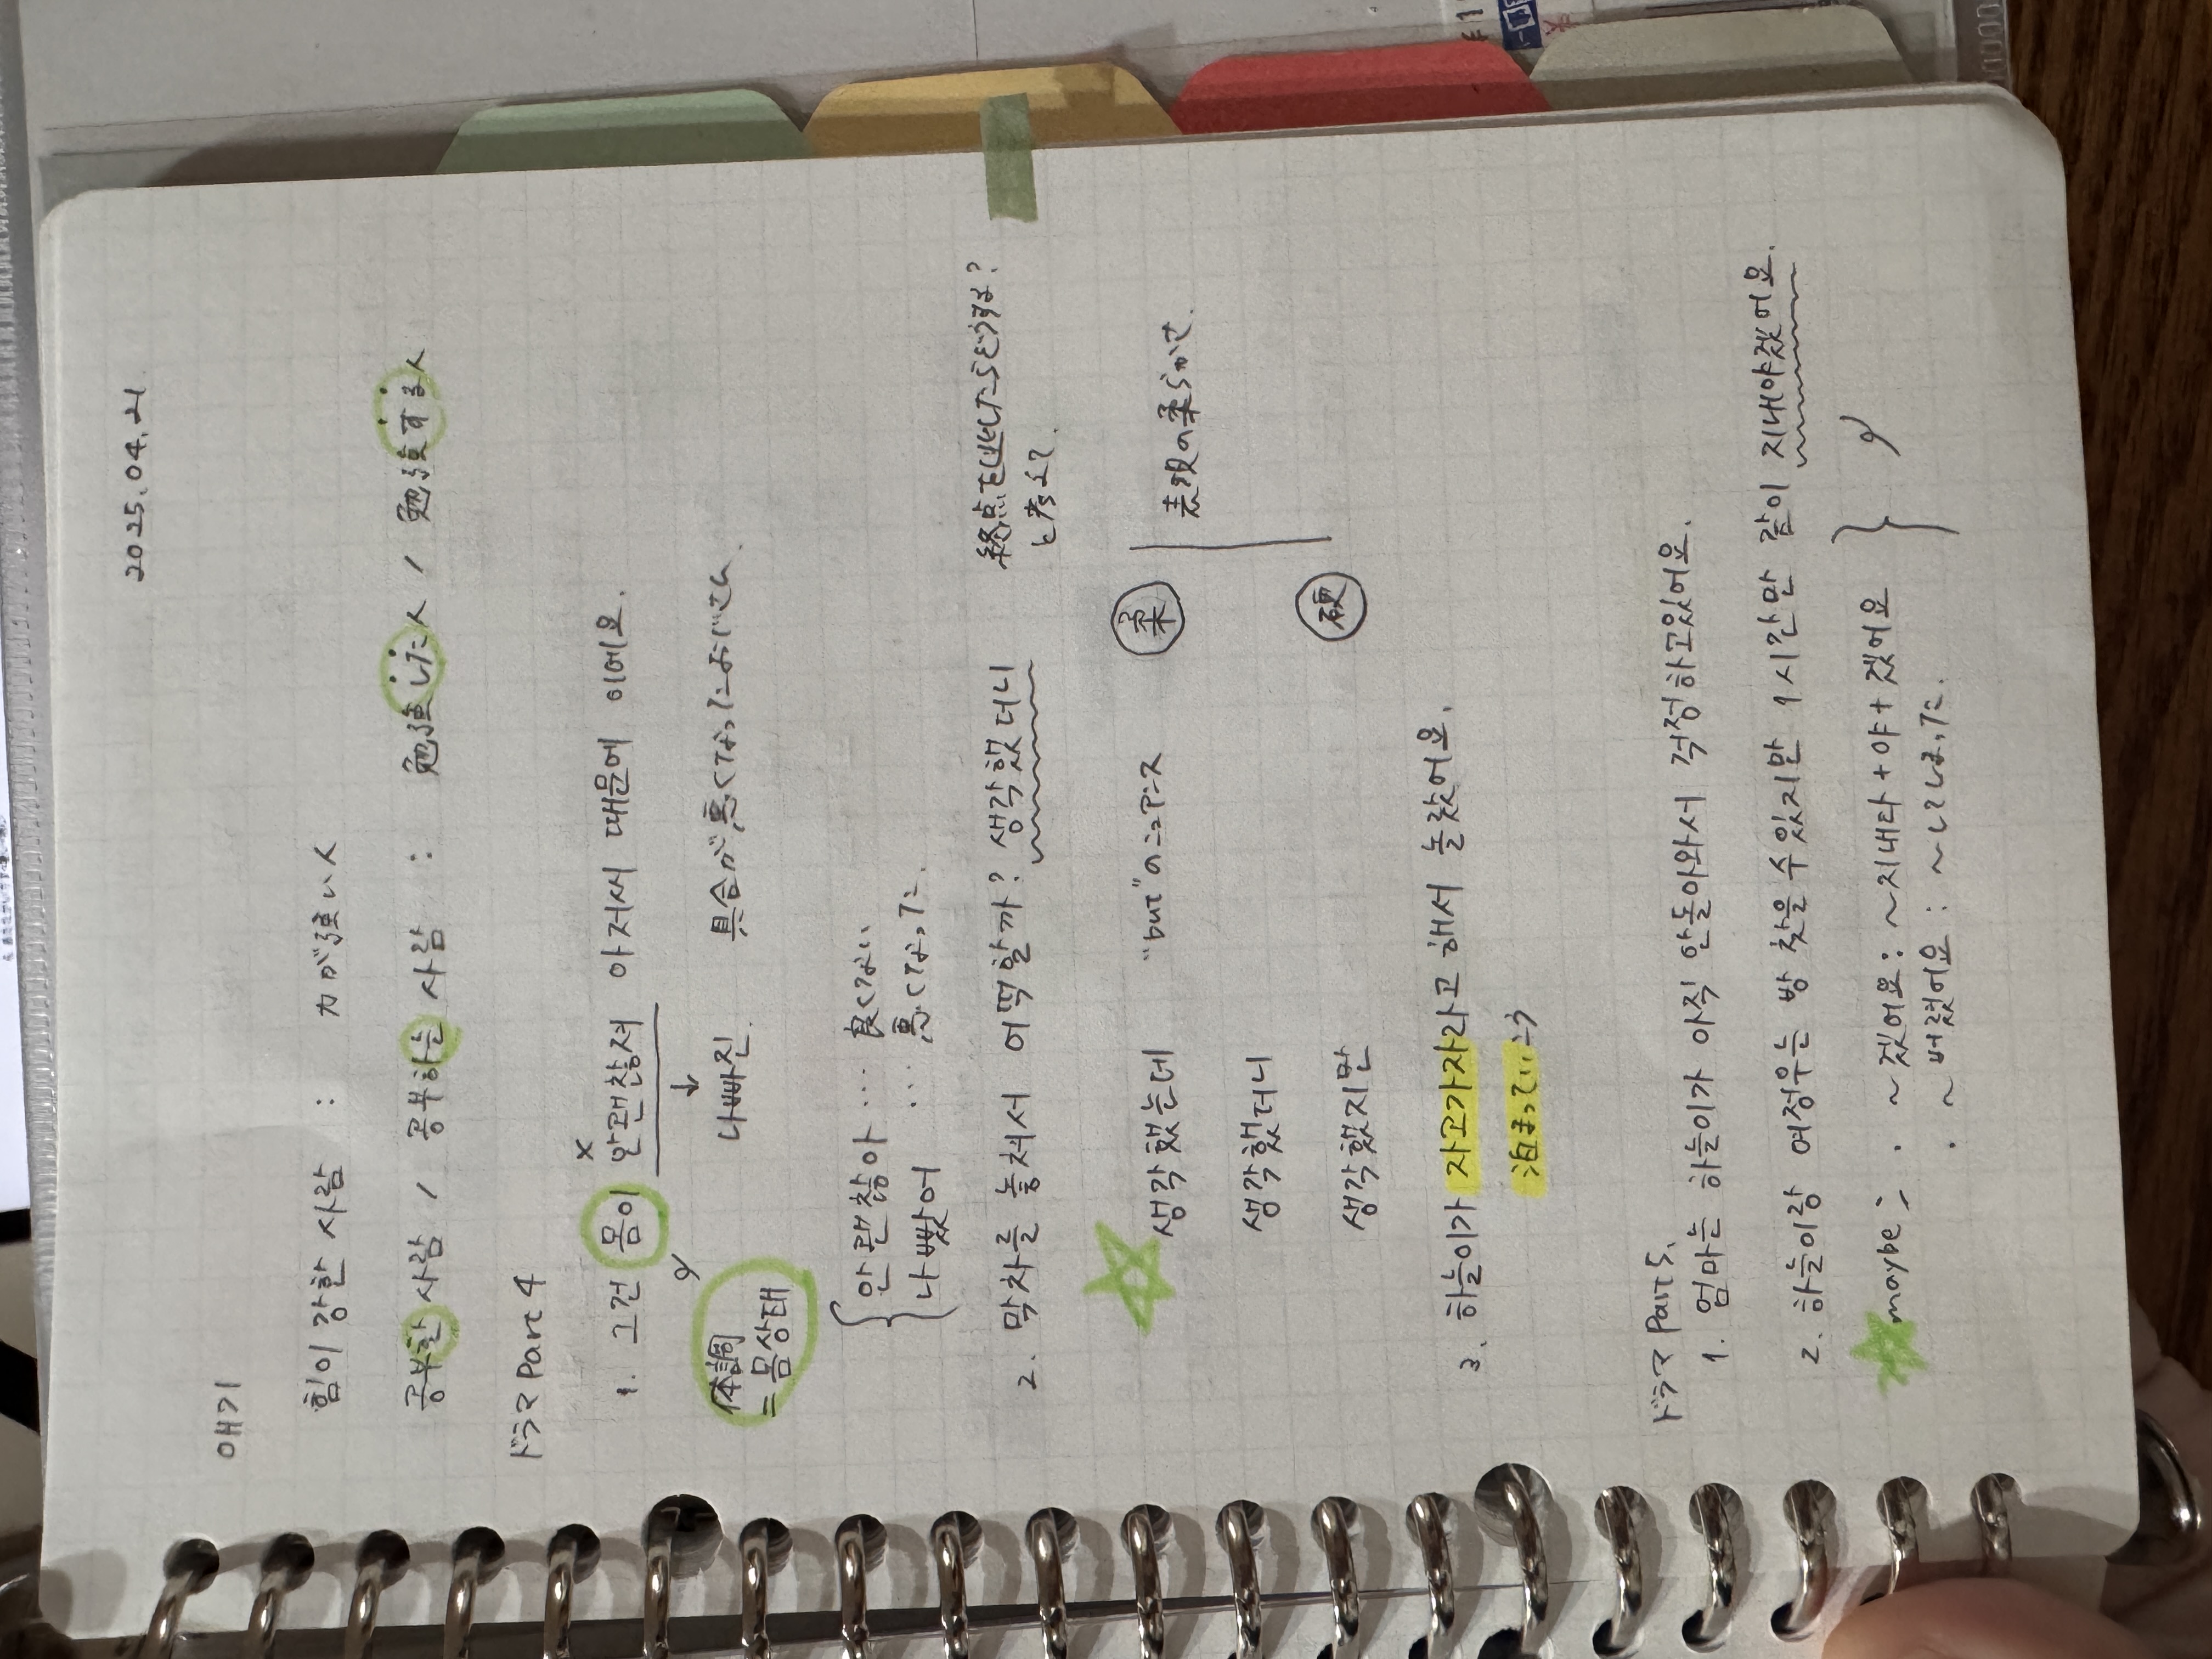 2025.04.21
얘기
힘이 강한 사람 : 力が強い人
공부한 사람 / 공부하는 사람 : 勉強した人 / 勉強する人
ドラマ Part 4
1. 그건 몸이 안괜찮져 아저씨 때문에 이에요.
体調
= 몸상태
↓
나빠진 具合が悪くなったおじさん.
안괜찮아 … 良くない
나빴어 … 悪くなった.
2. 막차를 놓쳐서 어떡할까? 생각했더니 終点て
と考えて.
생각했는데 "but"のニュアンス 柔
생각했더니 表現の柔らかさ.
생각했지만 硬
3. 하늘이가 자고가자라고 해서 놀랐어요.
泊まっていこう
ドラマ Part 5.
1. 엄마는 하늘이가 아직 안돌아와서 걱정하고있어요.
2. 하늘이랑 여정우는 방 찾을 수 있지만 1시간만 같이 지내야겠어요.
maybe; · ~겠어요 : ~지내다 + 야 + 겠어요
· ~버렸어요 : ~してしまった.